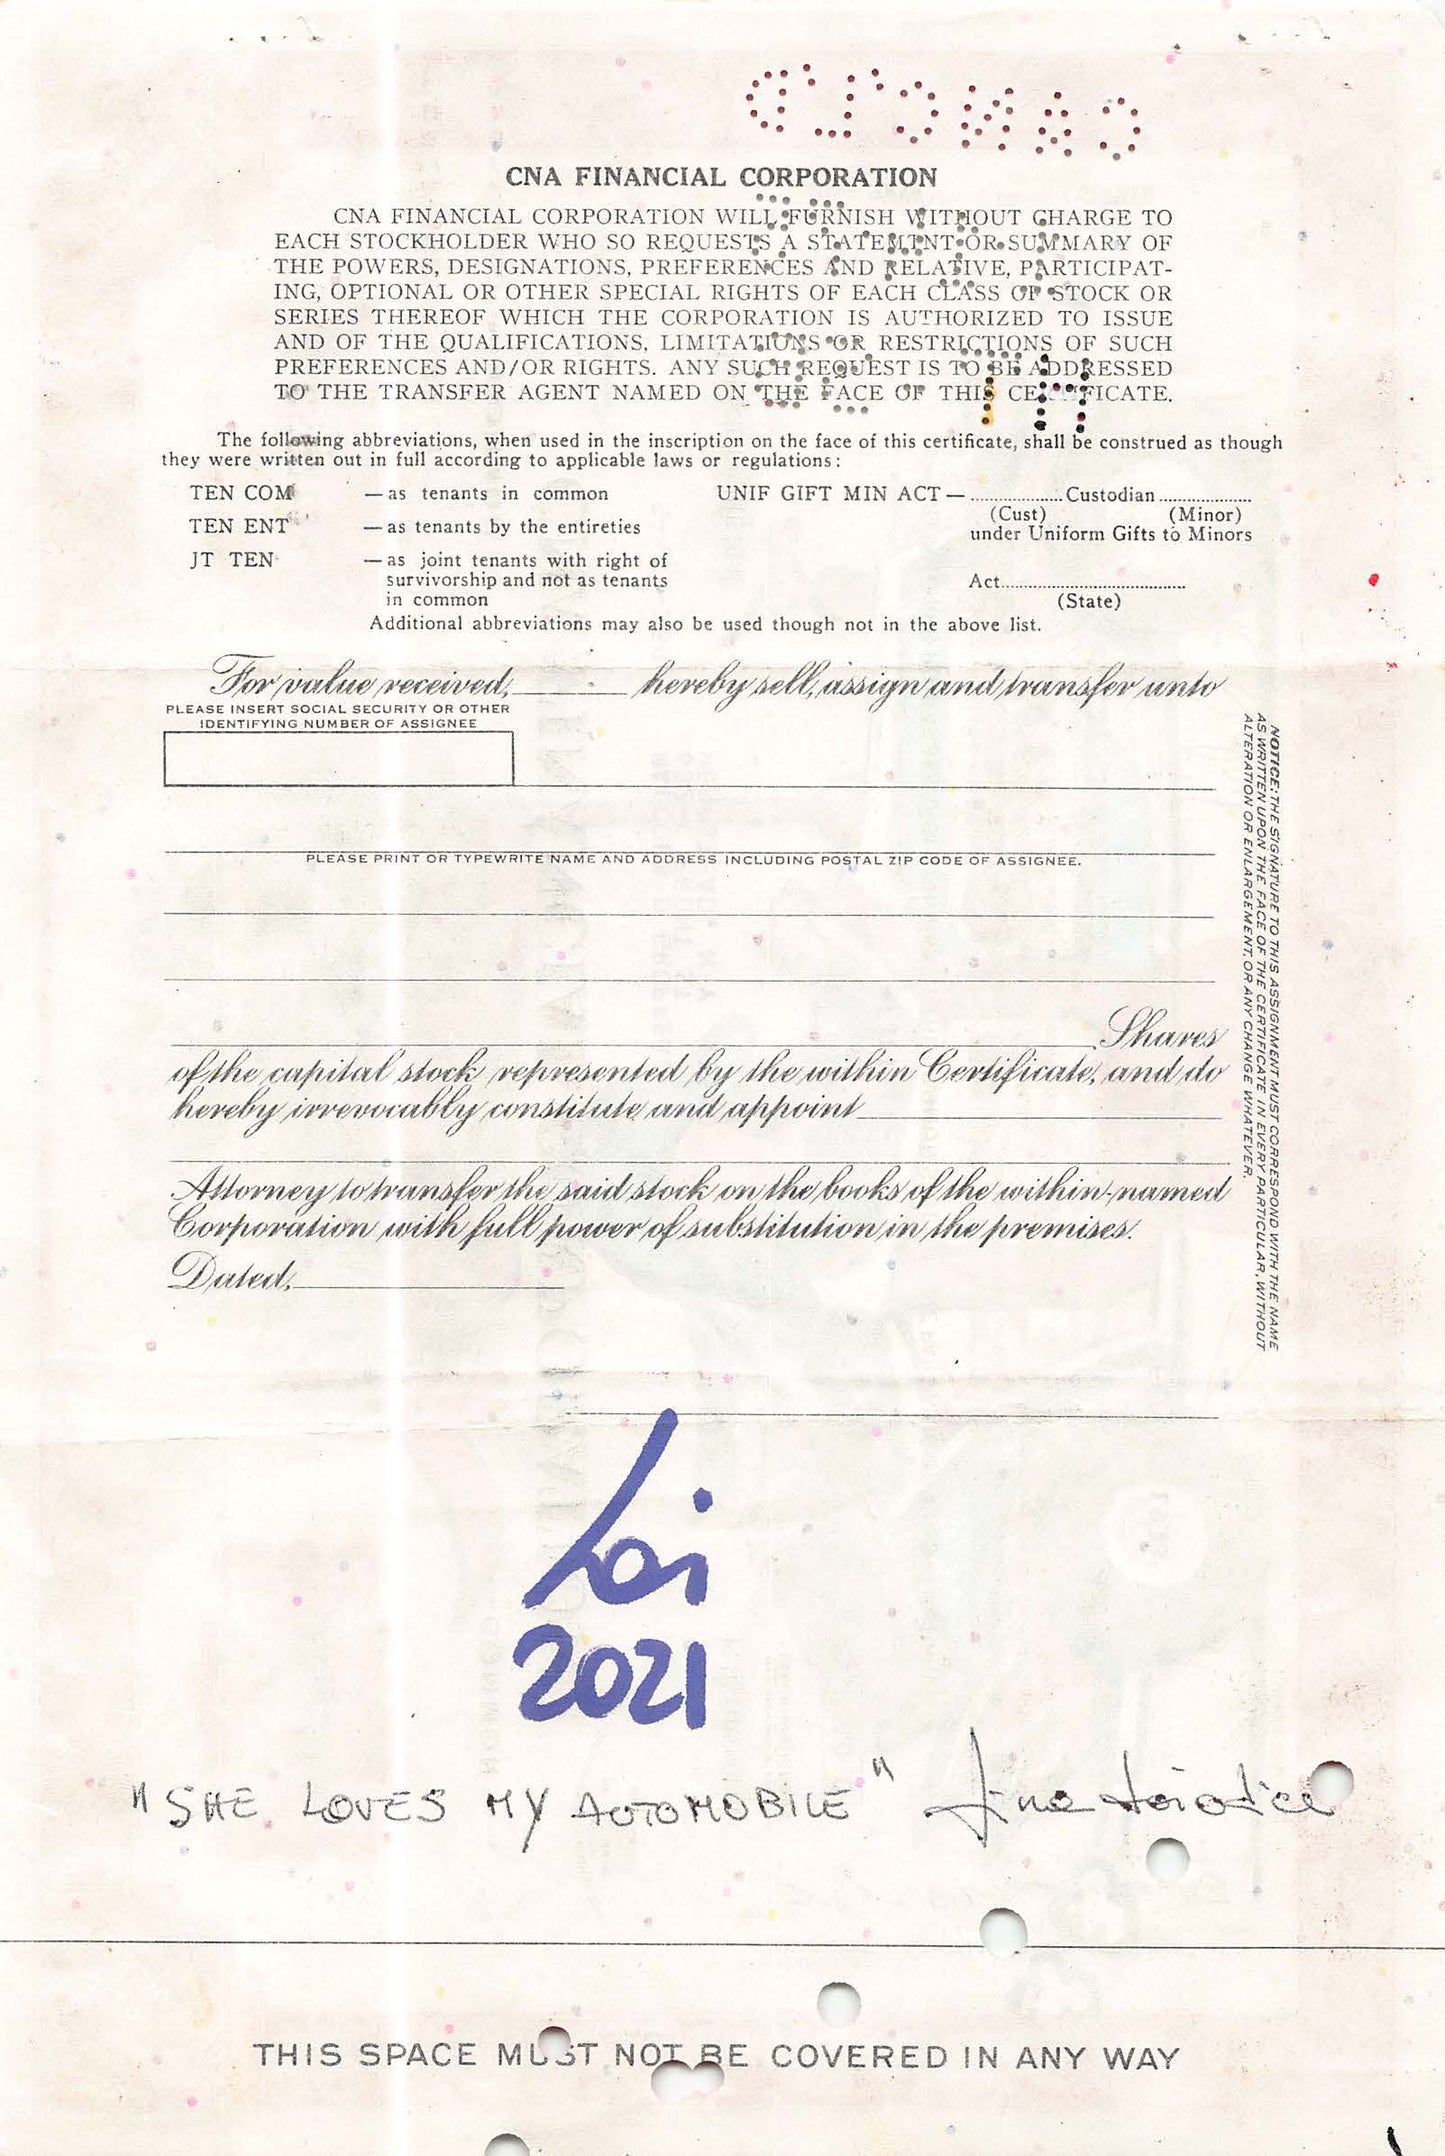 CNA FINANCIAL CORPORATION
CNA FINANCIAL CORPORATION WILL FURNISH WITHOUT CHARGE TO
EACH STOCKHOLDER WHO SO REQUESTS A STATEMENT OR SUMMARY OF
THE POWERS, DESIGNATIONS, PREFERENCES AND RELATIVE, PARTICIPAT-
ING, OPTIONAL OR OTHER SPECIAL RIGHTS OF EACH CLASS OF STOCK OR
SERIES THEREOF WHICH THE CORPORATION IS AUTHORIZED TO ISSUE
AND OF THE QUALIFICATIONS, LIMITATIONS OR RESTRICTIONS OF SUCH
PREFERENCES AND/OR RIGHTS. ANY SUCH REQUEST IS TO BE ADDRESSED
TO THE TRANSFER AGENT NAMED ON THE FACE OF THIS CERTIFICATE.
The following abbreviations, when used in the inscription on the face of this certificate, shall be construed as though
they were written out in full according to applicable laws or regulations:
TEN COM —as tenants in common UNIF GIFT MIN ACT—....................Custodian....................
(Cust) (Minor)
TEN ENT —as tenants by the entireties under Uniform Gifts to Minors
JT TEN —as joint tenants with right of
survivorship and not as tenants Act........................................
in common (State)
Additional abbreviations may also be used though not in the above list.
For value received, hereby sell, assign and transfer unto
PLEASE INSERT SOCIAL SECURITY OR OTHER
IDENTIFYING NUMBER OF ASSIGNEE
PLEASE PRINT OR TYPEWRITE NAME AND ADDRESS INCLUDING POSTAL ZIP CODE OF ASSIGNEE.
Shares
of the capital stock represented by the within Certificate, and do
hereby irrevocably constitute and appoint
Attorney to transfer the said stock on the books of the within-named
Corporation with full power of substitution in the premises.
Dated,
NOTICE: THE SIGNATURE TO THIS ASSIGNMENT MUST CORRESPOND WITH THE NAME
AS WRITTEN UPON THE FACE OF THE CERTIFICATE IN EVERY PARTICULAR, WITHOUT
ALTERATION OR ENLARGEMENT, OR ANY CHANGE WHATEVER.
Loi
2021
"SHE LOVES MY AUTOMOBILE"
THIS SPACE MUST NOT BE COVERED IN ANY WAY